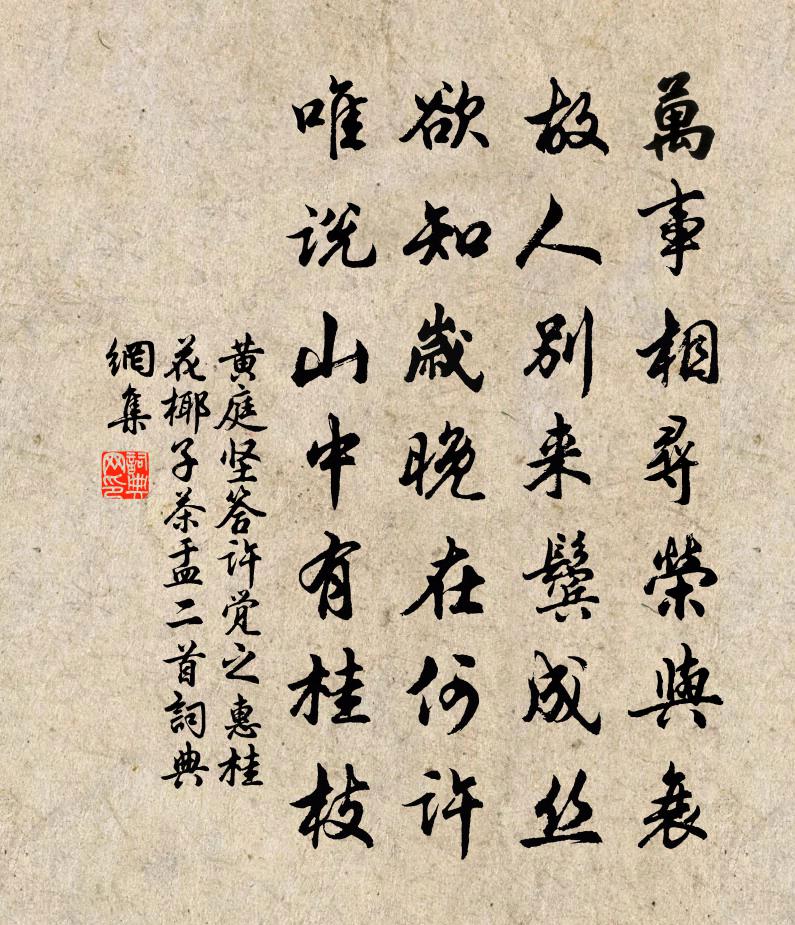 萬事相尋榮與衰
故人别来鬓成丝
欲知嵗晚在何许
唯说山中有桂枝
黄庭坚答许觉之惠桂
花椰子茶盂二首詞典
網集
詞典
网印